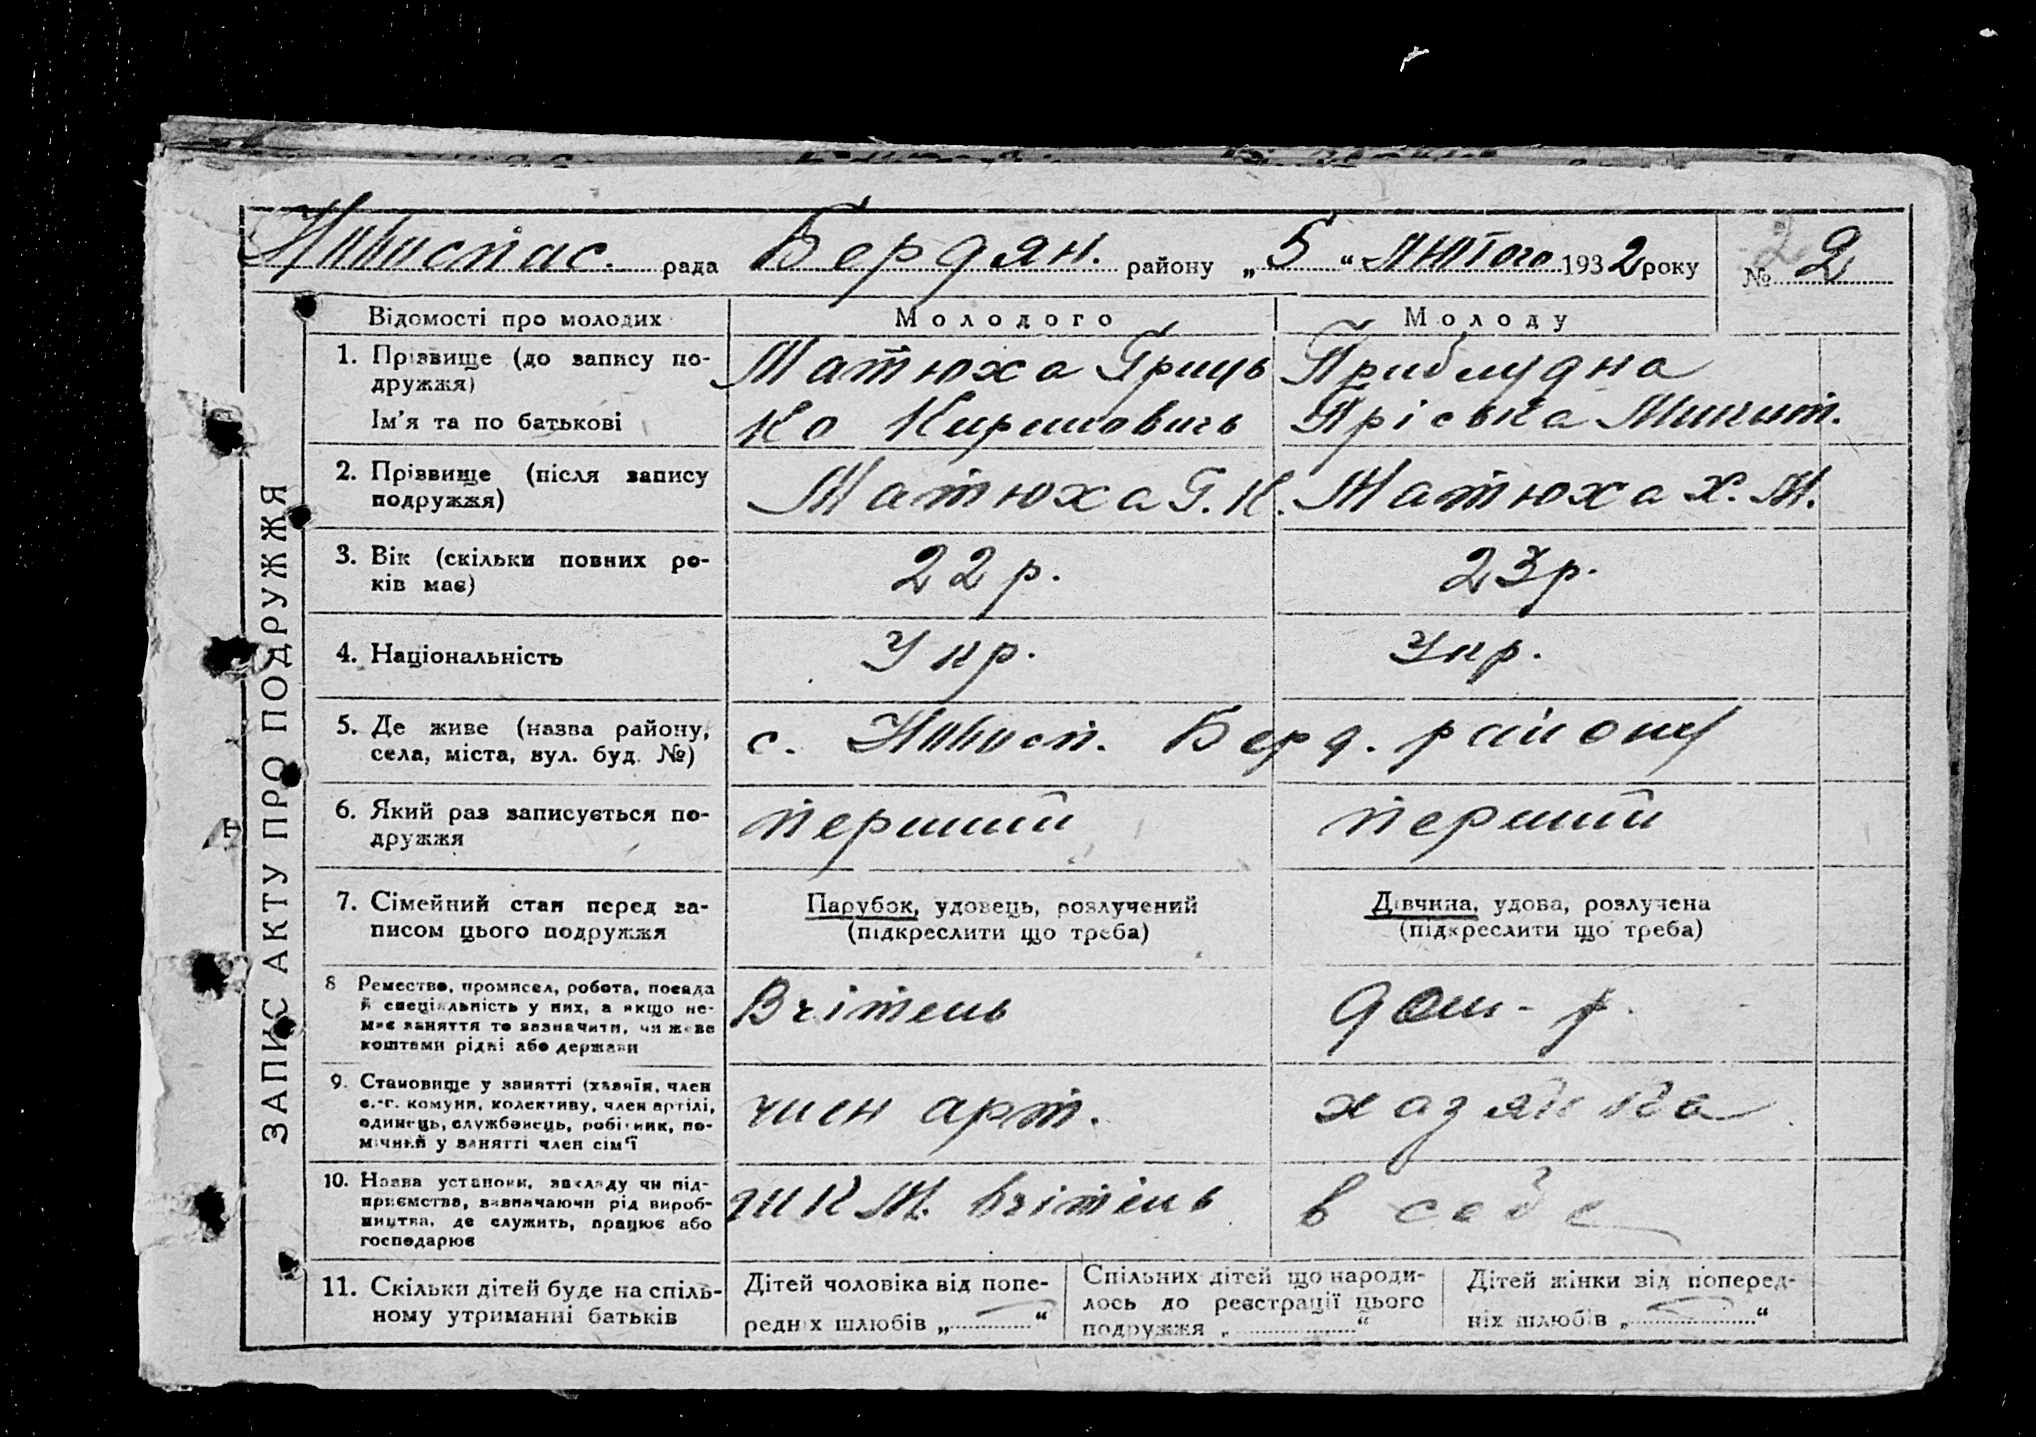 Новоспас. рада Бердян. району „5“ лютого 1932 року № 2
ЗАПИС АКТУ ПРО ПОДРУЖЖЯ
Відомості про молодих
Молодого
Молоду
1. Прізвище (до запису по-
дружжя)
Ім'я та по батькові
Матюха Гриць
ко Кирилович
Приблудна
Пріська Микит.
2. Прізвище (після запису
подружжя)
Матюха Г. К.
Матюха Х. М.
3. Вік (скільки повних ро-
ків має)
22 р.
23 р.
4. Національність
Укр.
Укр.
5. Де живе (назва району,
села, міста, вул. буд. №)
с. Новосп. Берд. району
6. Який раз записується по-
дружжя
перший
перший
7. Сімейний стан перед за-
писом цього подружжя
Парубок, удовець, розлучений
(підкреслити що треба)
Дівчина, удова, розлучена
(підкреслити що треба)
8 Ремество, промисел, робота, посада
й спеціяльність у них, а якщо не-
має заняття то зазначити, чи живе
коштами рідні або держави
Вчітель
дом-р.
9. Становище у занятті (хазяїн, член
с.-г. комуни, колективу, член артілі,
одинець, службовець, робітник, по-
мічний у занятті член сім'ї
член арт.
хазяйка
10. Назва установи, закладу чи під-
приємства, зазначаючи рід вироб-
ництва, де служить, працює або
господарює
ШКМ. вчітель
в себе
11. Скільки дітей буде на спіль-
ному утриманні батьків
Дітей чоловіка від попе-
редніх шлюбів „ “
Спільних дітей що народи-
лось до реєстрації цього
подружжя „ “
Дітей жінки від поперед-
ніх шлюбів „ “